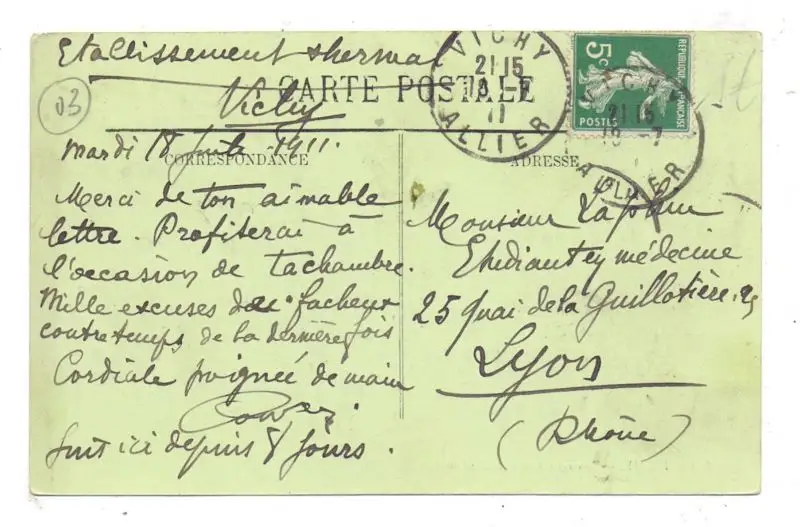 Etablissement thermal
CARTE POSTALE
Vichy
03
mardi 18 1911.
CORRESPONDANCE
Merci de ton aimable
lettre. Profiterai à
l'occasion de ta chambre.
Mille excuses facheux
contretemps de la dernière fois
Cordiale poignée de main
ici depuis 8 jours.
VICHY
21 15
18 -7
11
ALLIER
5c
REPUBLIQUE FRANÇAISE
POSTES
VICHY
21 15
18 -7
ALLIER
ADRESSE
Monsieur
Etudiant en médecine
25 Quai de la Guillotière, 25
Lyon
(Rhône)